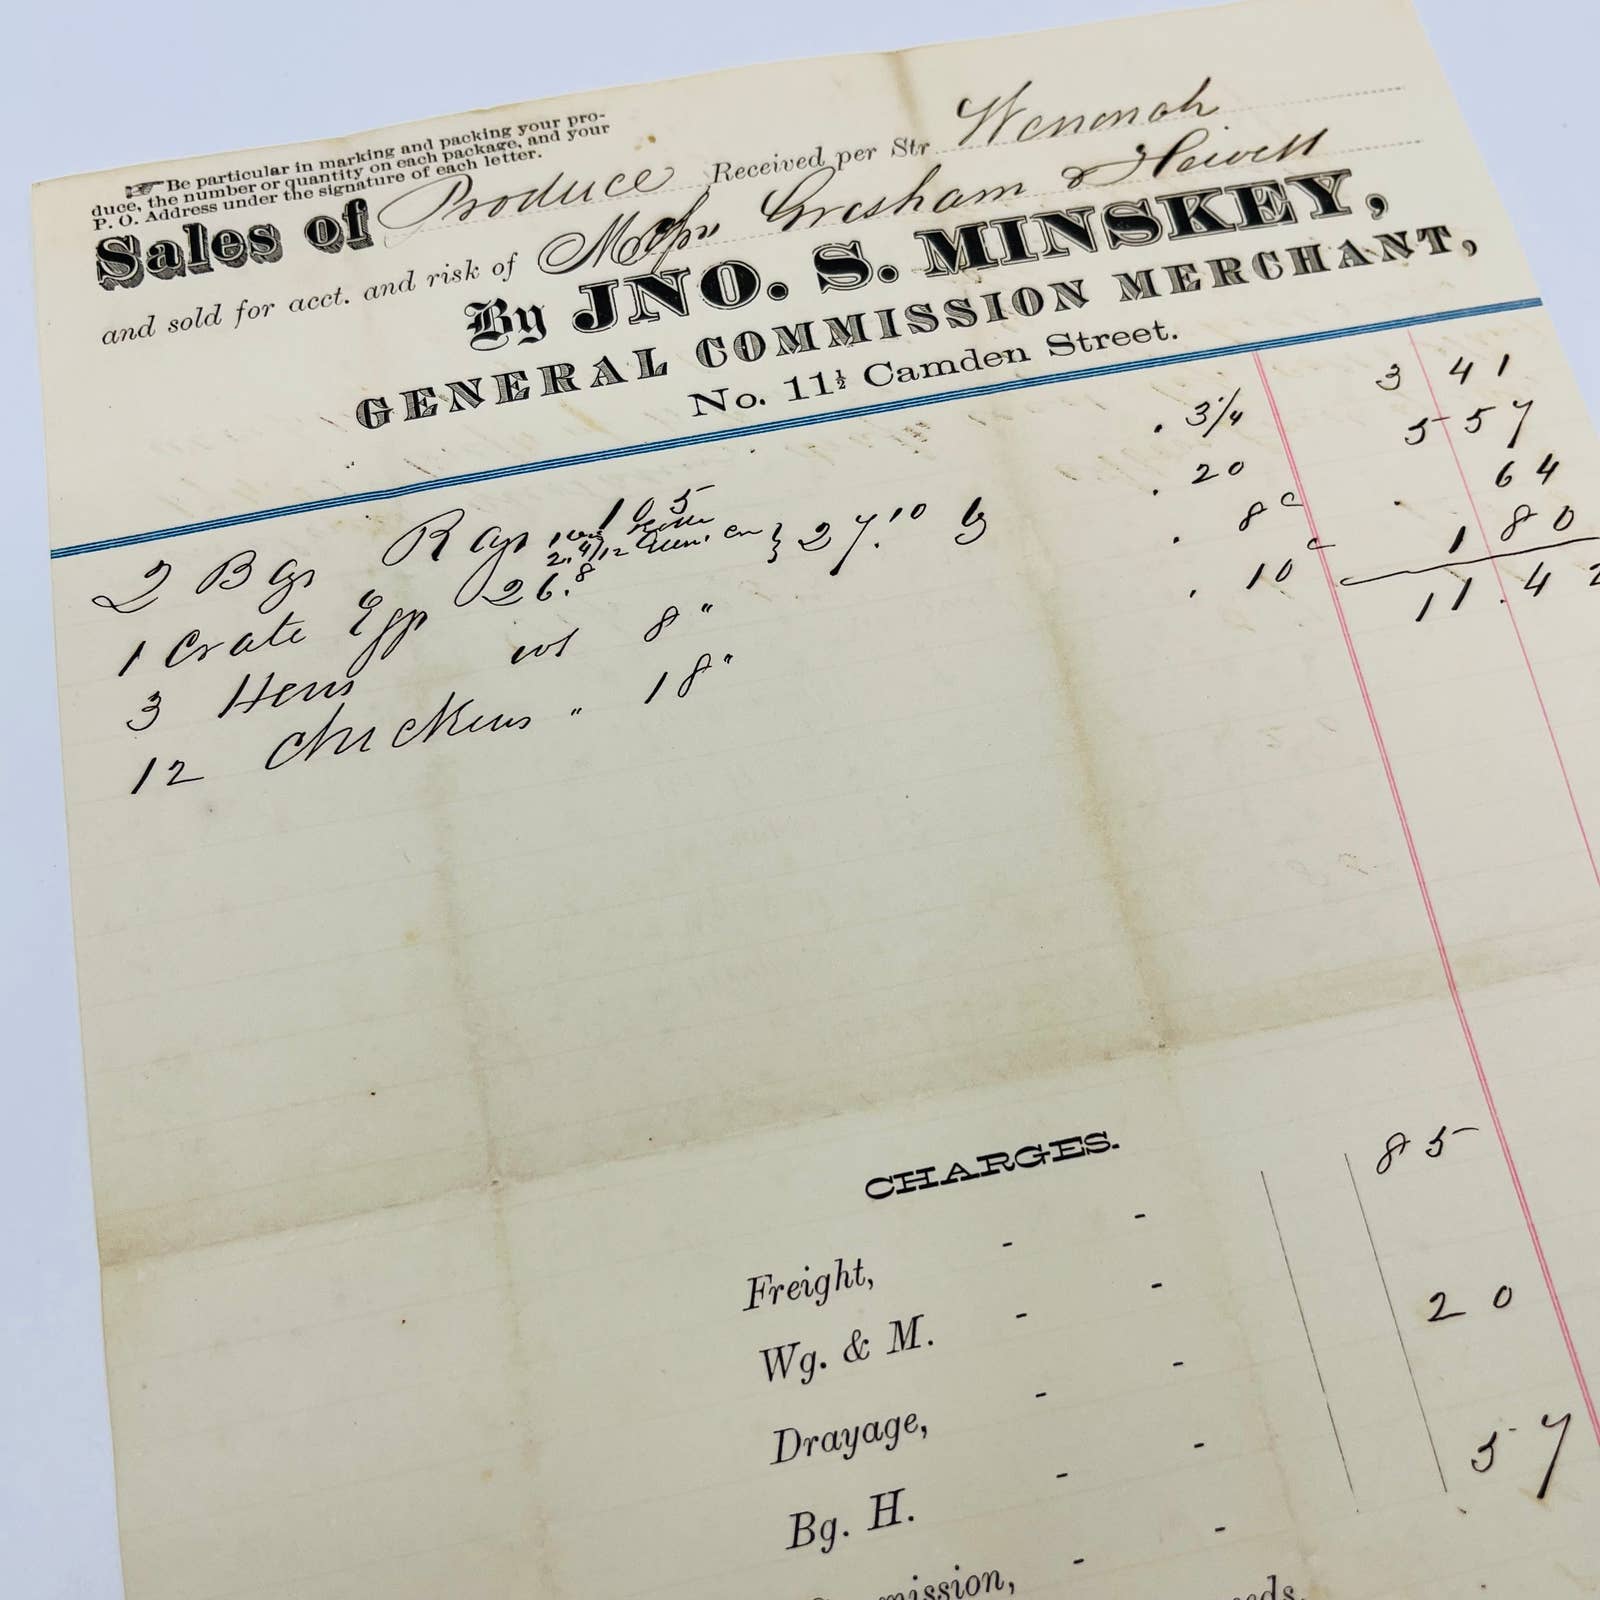 ☞Be particular in marking and packing your pro-
duce, the number or quantity on each package, and your
P. O. Address under the signature of each letter.
Sales of Produce Received per Str Wenonah
and sold for acct. and risk of Gresham & Hewett
By JNO. S. MINSKEY,
GENERAL COMMISSION MERCHANT,
No. 11½ Camden Street.
2 Bgs Rags 105 . 3¼ 3 41
1 Crate Eggs 26.8 27.10 . 20 5 57
3 Hens wt 8" . 8c 64
12 Chickens " 18" . 10c 1 80
11.42
CHARGES.
Freight, - - 85
Wg. & M. - -
Drayage, - - 20
Bg. H. - -
mission, - - 57
eds.